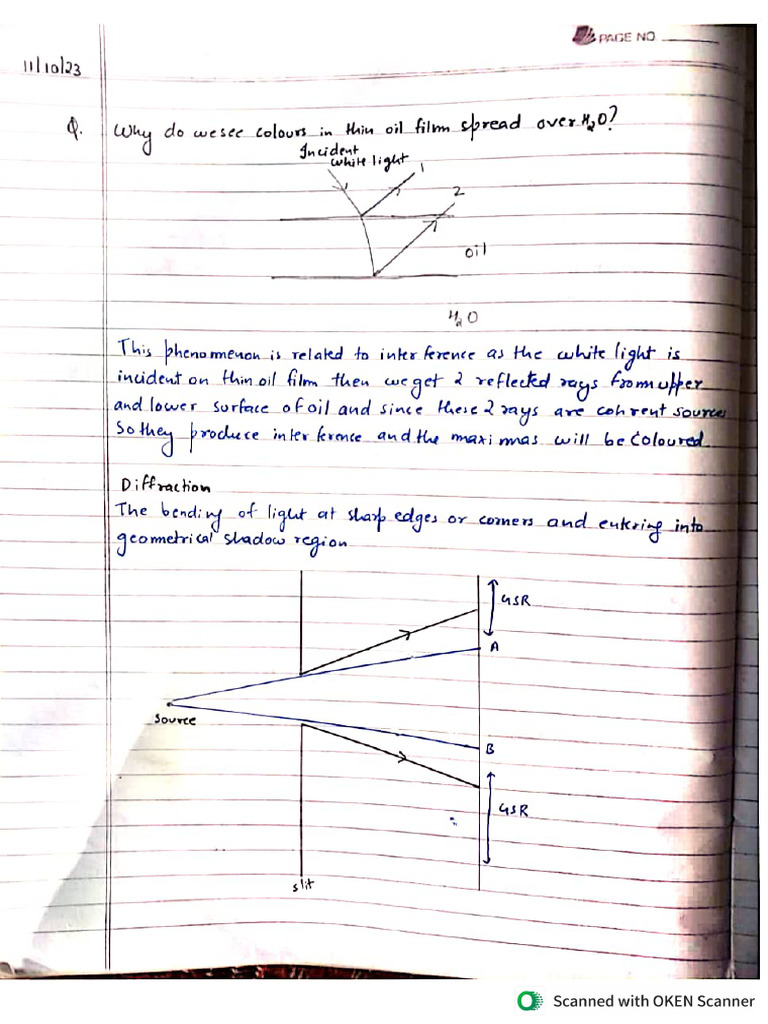 PAGE NO.
11/10/23
Q. Why do we see colours in thin oil film spread over H₂O?
Incident
white light
1
2
oil
H₂O
This phenomenon is related to interference as the white light is
incident on thin oil film then we get 2 reflected rays from upper
and lower surface of oil and since these 2 rays are cohrent sources
So they produce interference and the maximas will be coloured
Diffraction
The bending of light at sharp edges or corners and entering into
geometrical shadow region
GSR
A
Source
B
GSR
slit
Scanned with OKEN Scanner